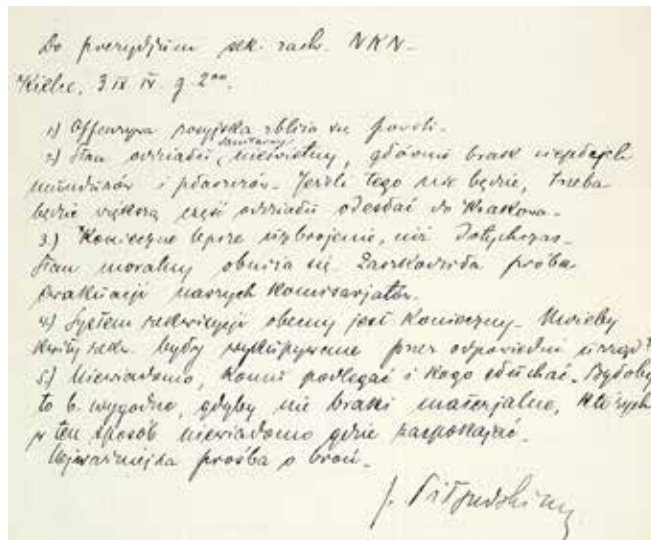 Do prezydjum sek. zach. NKN.
Kielce, 3 IX. g. 2°°.
1) Offenzywa rosyjska zbliża się powoli.
2) Stan oddziału sanitarny nieświetny, głównie brak ciepłych
mundurów i płaszczów. Jeżeli tego nie będzie, trzeba
będzie większą część oddziału odesłać do Krakowa.
3) Konieczne lepsze uzbrojenie, niż dotychczas.
Stan moralny obniża się. Zaszkodziła próba
ewakuacji naszych komisarjatów.
4) System rekwizycji obecny jest konieczny.
kwity rekw. były wykupywane przez odpowiedni urząd?
5) Niewiadomo, komu podlegać i kogo słuchać. Byłoby
to b. wygodne, gdyby nie braki materjalne, których
w ten sposób niewiadomo gdzie zaspokajać.
Najważniejsza prośba o broń.
J. Piłsudski